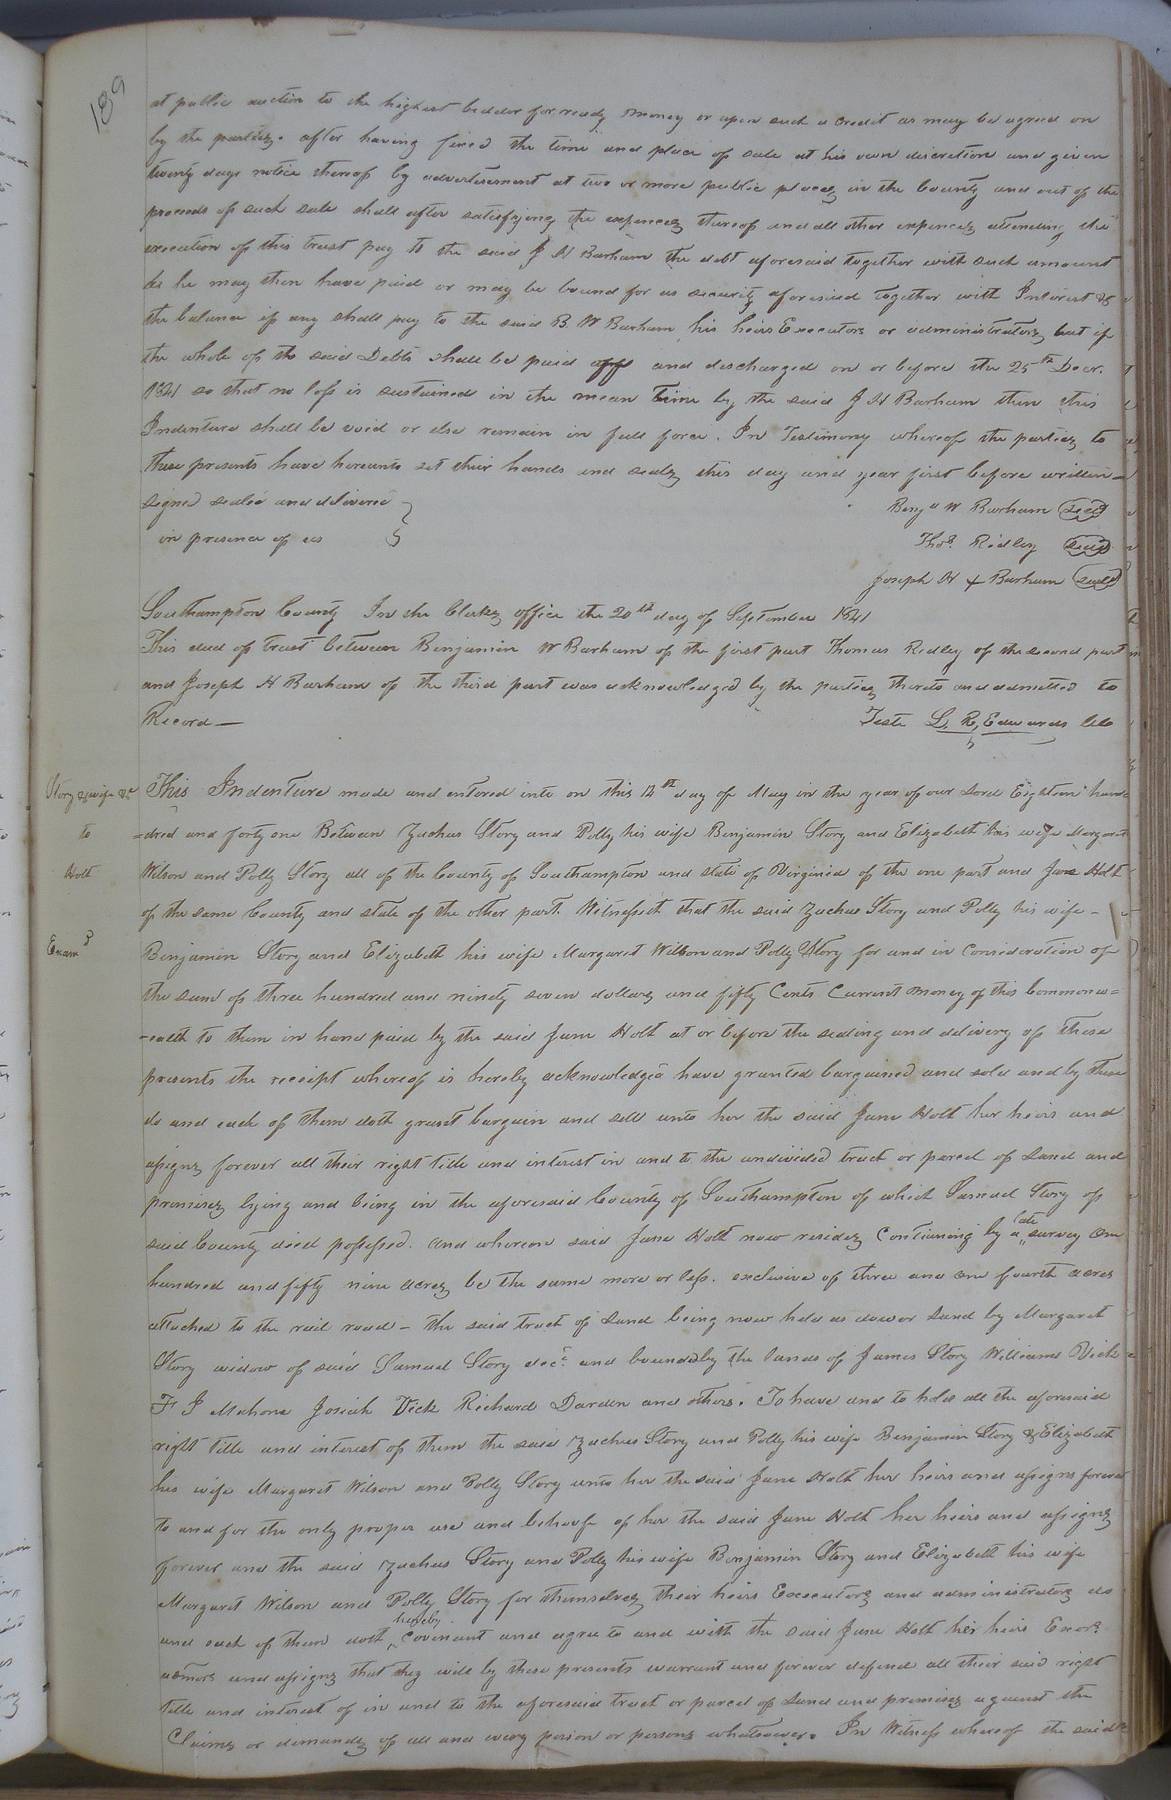 189
at public auction to the highest bidder for ready money or upon such a credit as may be agreed on
by the parties. after having fixed the time and place of sale at his own discretion and given
twenty days notice thereof by advertisement at two or more public places in the County and out of the
proceeds of such sale shall after satisfying the expences thereof and all other expences attending the
execution of this trust pay to the said J H Barham the debt aforesaid together with such amount
As he may then have paid or may be bound for as security aforesaid together with Interest &
the balance if any shall pay to the said B. W Barham his heirs Executors or administrators, but if
the whole of the said Debts shall be paid off and discharged on or before the 25th Decr.
1841 so that no loss is sustained in the mean time by the said J H Barham then this
Indenture shall be void or else remain in full force. In Testimony whereof the parties to
these presents have hereunto set their hands and seals this day and year first before written—
signed sealed and delivered
in presence of us
Benja W Barham seal
Thos. Ridley seal
Joseph H + Barham seal
Southampton County In the Clerks office the 20th day of September 1841
This deed of trust between Benjamin W Barham of the first part Thomas Ridley of the second part
and Joseph H Barham of the third part was acknowledged by the parties thereto and admitted to
Record—
Teste L. R. Edwards Clk
Story & wife &c
to
Holt
Examd
This Indenture made and entered into on this 12th day of May in the year of our Lord Eighteen hun=
=dred and forty one Between Zachus Story and Polly his wife Benjamin Story and Elizabeth his wife Margaret
Wilson and Polly Story all of the County of Southampton and state of Virginia of the one part and Jane Holt
of the same County and state of the other part. Witnesseth that the said Zachus Story and Polly his wife -
Benjamin Story and Elizabeth his wife Margaret Wilson and Polly Story for and in Consideration of
the sum of three hundred and ninety seven dollars and fifty Cents Current money of this Commonw=
=ealth to them in hand paid by the said Jane Holt at or before the sealing and delivery of these
presents the receipt whereof is hereby acknowledged have granted bargained and sold and by these
do and each of them doth grant bargain and sell unto her the said Jane Holt her heirs and
assigns forever all their right title and interest in and to the undivided tract or parcel of Land and
premises lying and being in the aforesaid County of Southampton of which Samuel Story of
said County died possessed. And whereon said Jane Holt now resides Containing by a late survey One
hundred and fifty nine acres be the same more or less. exclusive of three and one fourth acres
attached to the rail road - the said tract of Land being now held as dower Land by Margaret
Story widow of said Samuel Story decd. and bounded by the lands of James Story Williams Vick
F J Mahone Josiah Vick Richard Darden and others. To have and to hold all the aforesaid
right title and interest of them the said Zachus Story and Polly his wife Benjamin Story & Elizabeth
his wife Margaret Wilson and Polly Story unto her the said Jane Holt her heirs and assigns forever
to and for the only proper use and behoofe of her the said Jane Holt her heirs and assigns
forever and the said Zachus Story and Polly his wife Benjamin Story and Elizabeth his wife
Margaret Wilson and Polly Story for themselves their heirs Executors and administrators do
and each of them doth hereby Covenant and agree to and with the said Jane Holt her heirs Exors.
admors and assigns that they will by these presents warrant and forever defend all their said right
title and interest of in and to the aforesaid tract or parcel of Land and premises against the
Claims or demands of all and every person or persons whatsoever. In Witness whereof the said